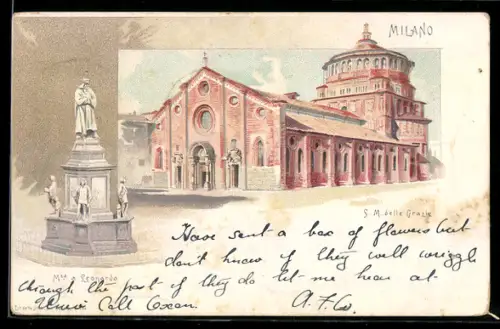 MILANO
S. M. delle Grazie
Mto a Leonardo
Have sent a box of flowers but
don't know if they will wriggle
through the part if they do let me hear at
Univ: Coll Oxon. A.F.W.